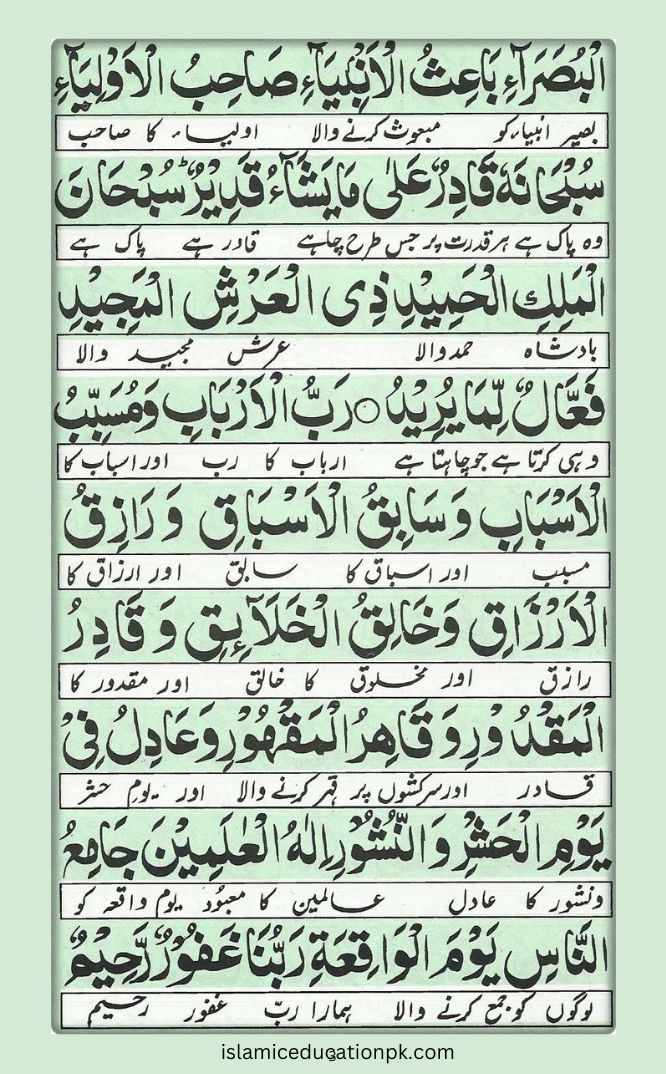 الْبُصَرَآءِ بَاعِثُ الْاَنْبِيَآءِ صَاحِبُ الْاَوْلِيَآءِ
بصیر انبیاء کو مبعوث کرنے والا اولیاء کا صاحب
سُبْحَانَهٗ قَادِرٌ عَلٰى مَا يَشَآءُ قَدِيْرٌ ؕ سُبْحَانَ
وہ پاک ہے ہر قدرت پر جس طرح چاہے قادر ہے پاک ہے
الْمَلِكِ الْحَمِيْدِ ذِى الْعَرْشِ الْمَجِيْدِ
بادشاہ حمد والا عرش مجید والا
فَعَّالٌ لِّمَا يُرِيْدُ ○ رَبُّ الْاَرْبَابِ وَمُسَبِّبُ
وہی کرتا ہے جو چاہتا ہے ارباب کا رب اور اسباب کا
الْاَسْبَابِ وَسَابِقُ الْاَسْبَاقِ وَرَازِقُ
مسبب اور اسباق کا سابق اور ارزاق کا
الْاَرْزَاقِ وَخَالِقُ الْخَلَآئِقِ وَقَادِرُ
رازق اور مخلوق کا خالق اور مقدور کا
الْمَقْدُوْرِ وَقَاهِرُ الْمَقْهُوْرِ وَعَادِلٌ فِىْ
قادر اور سرکشوں پر قہر کرنے والا اور یوم حشر
يَوْمِ الْحَشْرِ وَالنُّشُوْرِ اِلٰهُ الْعٰلَمِيْنَ جَامِعُ
ونشور کا عادل عالمین کا معبود یوم واقعہ کو
النَّاسِ يَوْمَ الْوَاقِعَةِ رَبُّنَا غَفُوْرٌ رَّحِيْمٌ
لوگوں کو جمع کرنے والا ہمارا ربّ غفور رحیم
islamiceducationpk.com